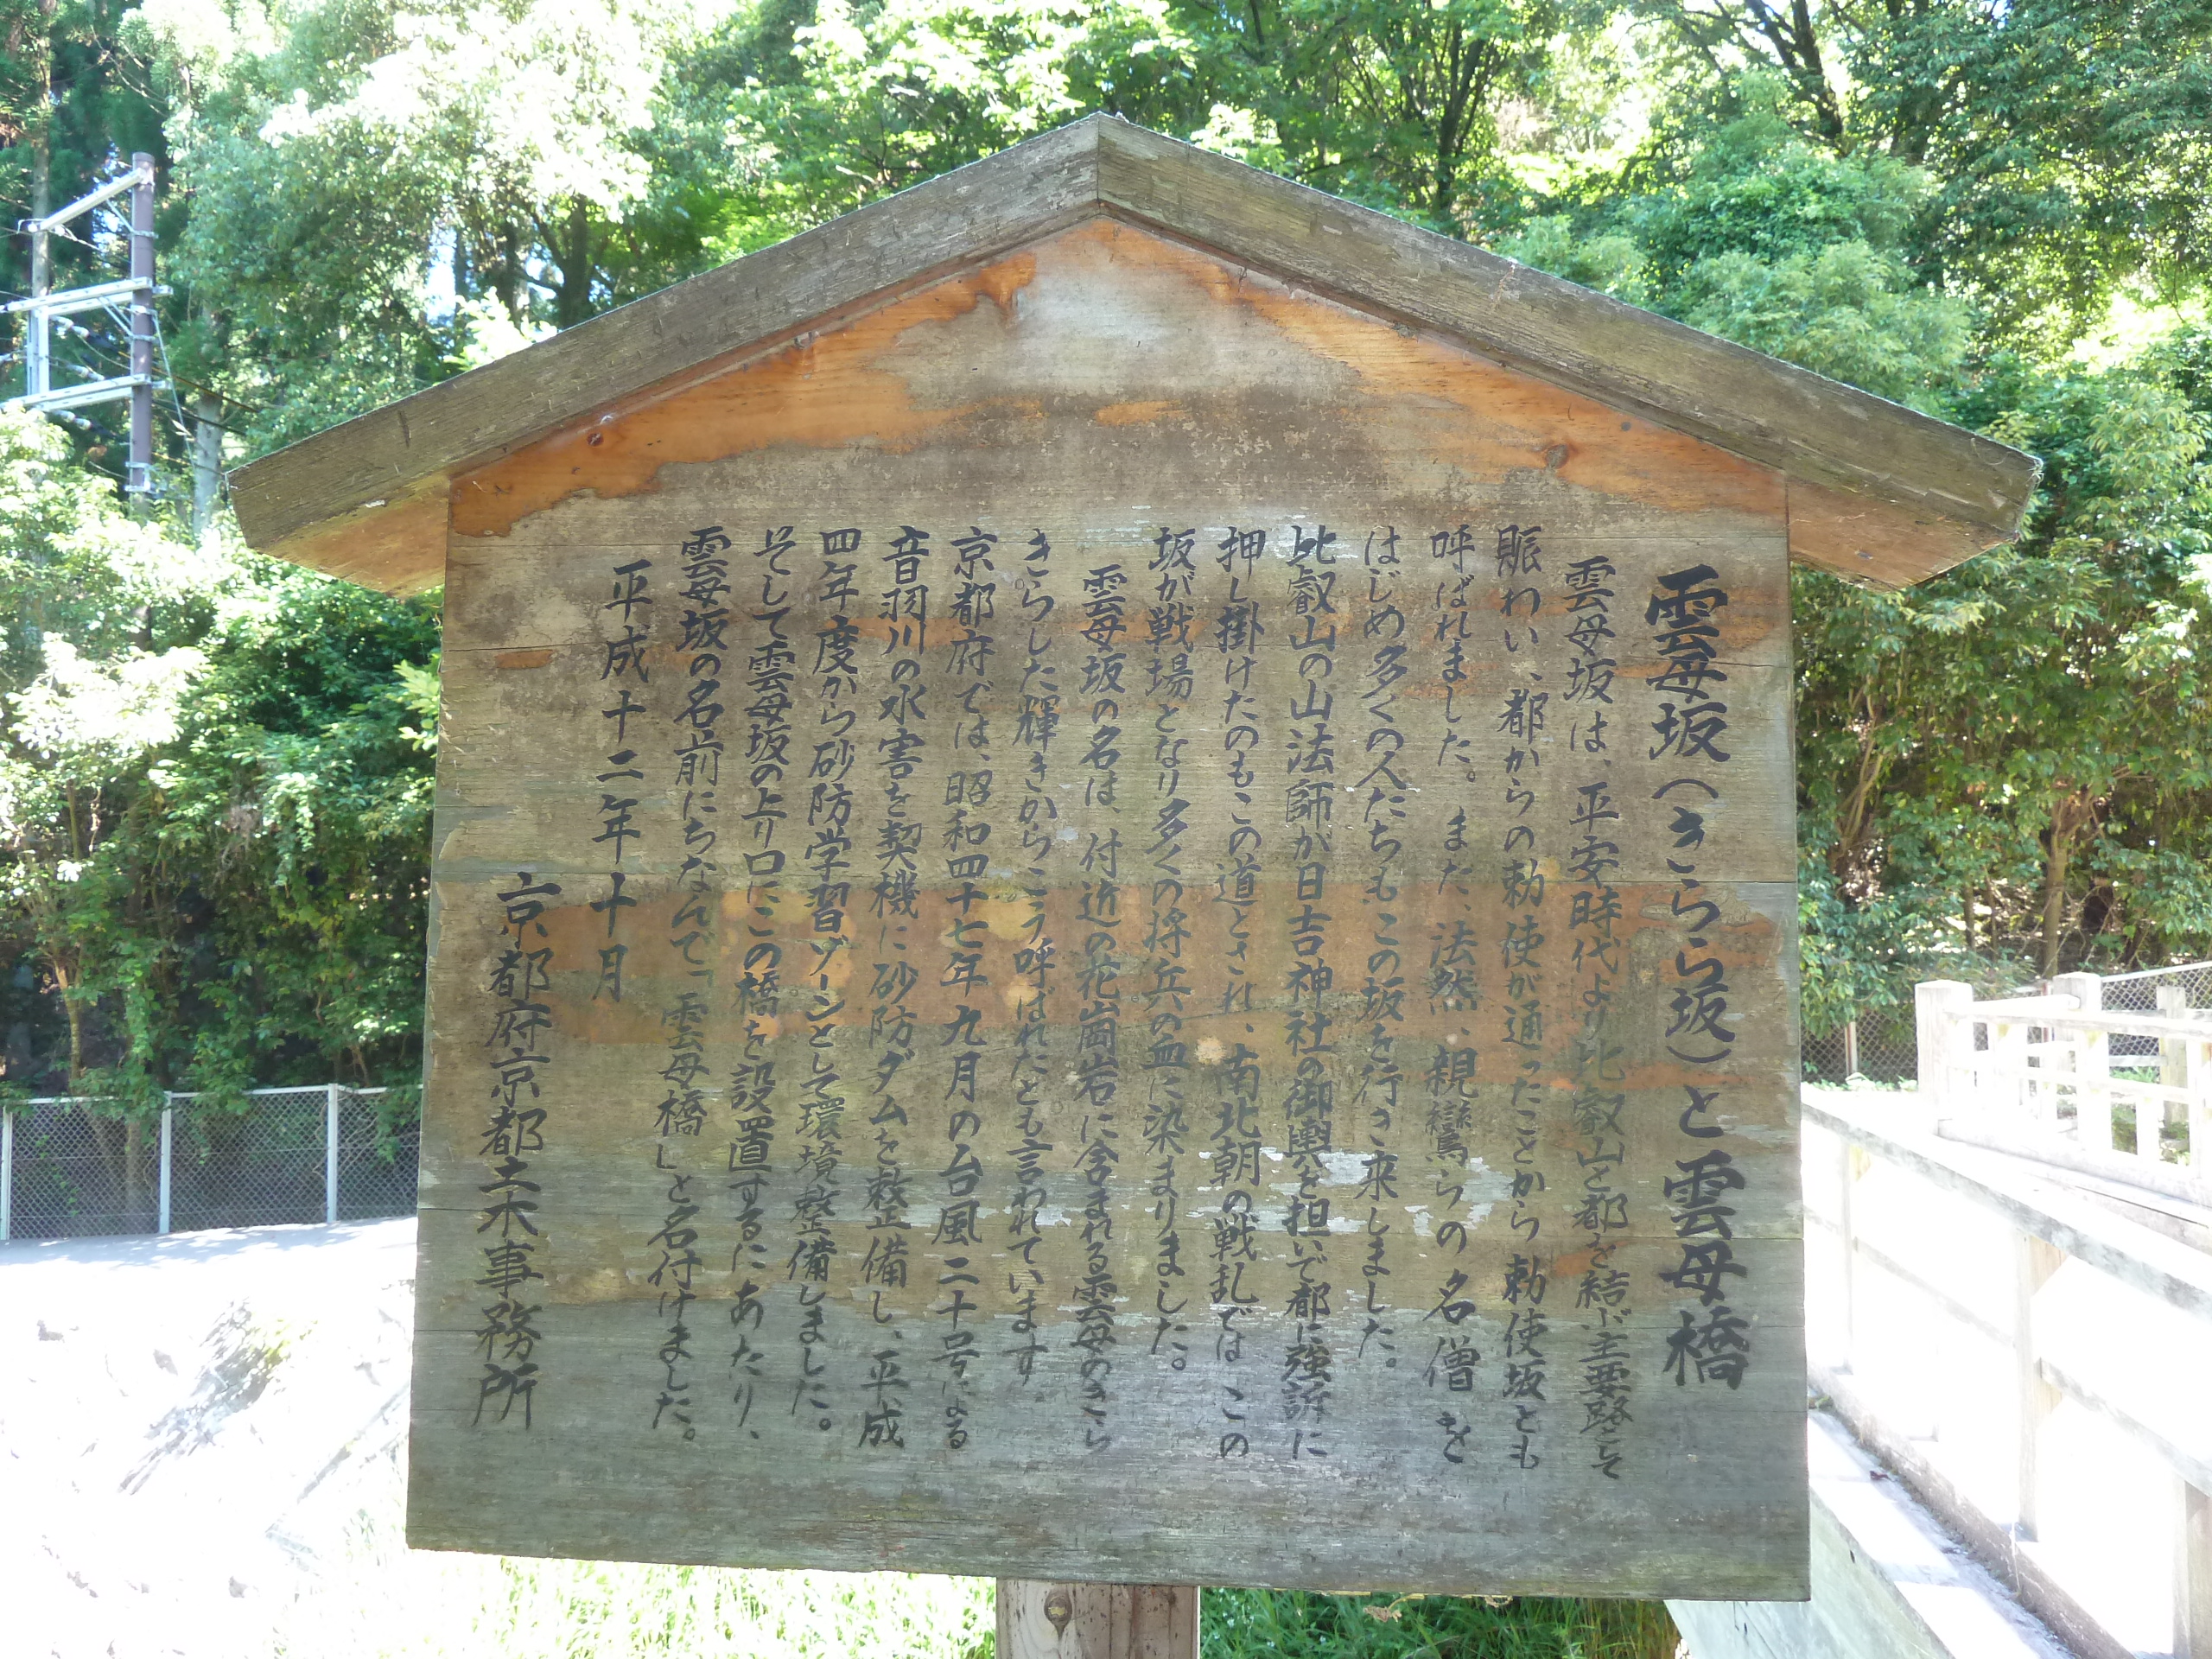 雲母坂(きらら坂)と雲母橋
雲母坂は、平安時代より比叡山と都を結ぶ主要路とそ
賑わい、都からの勅使が通ったことから勅使坂とも
呼ばれました。また、法然、親鸞らの名僧を
はじめ多くの人たちもこの坂を行き来しました。
比叡山の山法師が日吉神社の御輿を担いで都に強訴に
押し掛けたのもこの道とされ、南北朝の戦乱ではこの
坂が戦場となり多くの将兵の血に染まりました。
雲母坂の名は、付近の花崗岩に含まれる雲母のきら
きらした輝きからこう呼ばれたとも言われています。
京都府では、昭和四十七年九月の台風二十号による
音羽川の水害を契機に砂防ダムを整備し、平成
四年度から砂防学習ゾーンとして環境整備しました。
そして雲母坂の上り口にこの橋を設置するにあたり、
雲母坂の名前にちなんで「雲母橋」と名付けました。
平成十二年十月
京都府京都土木事務所